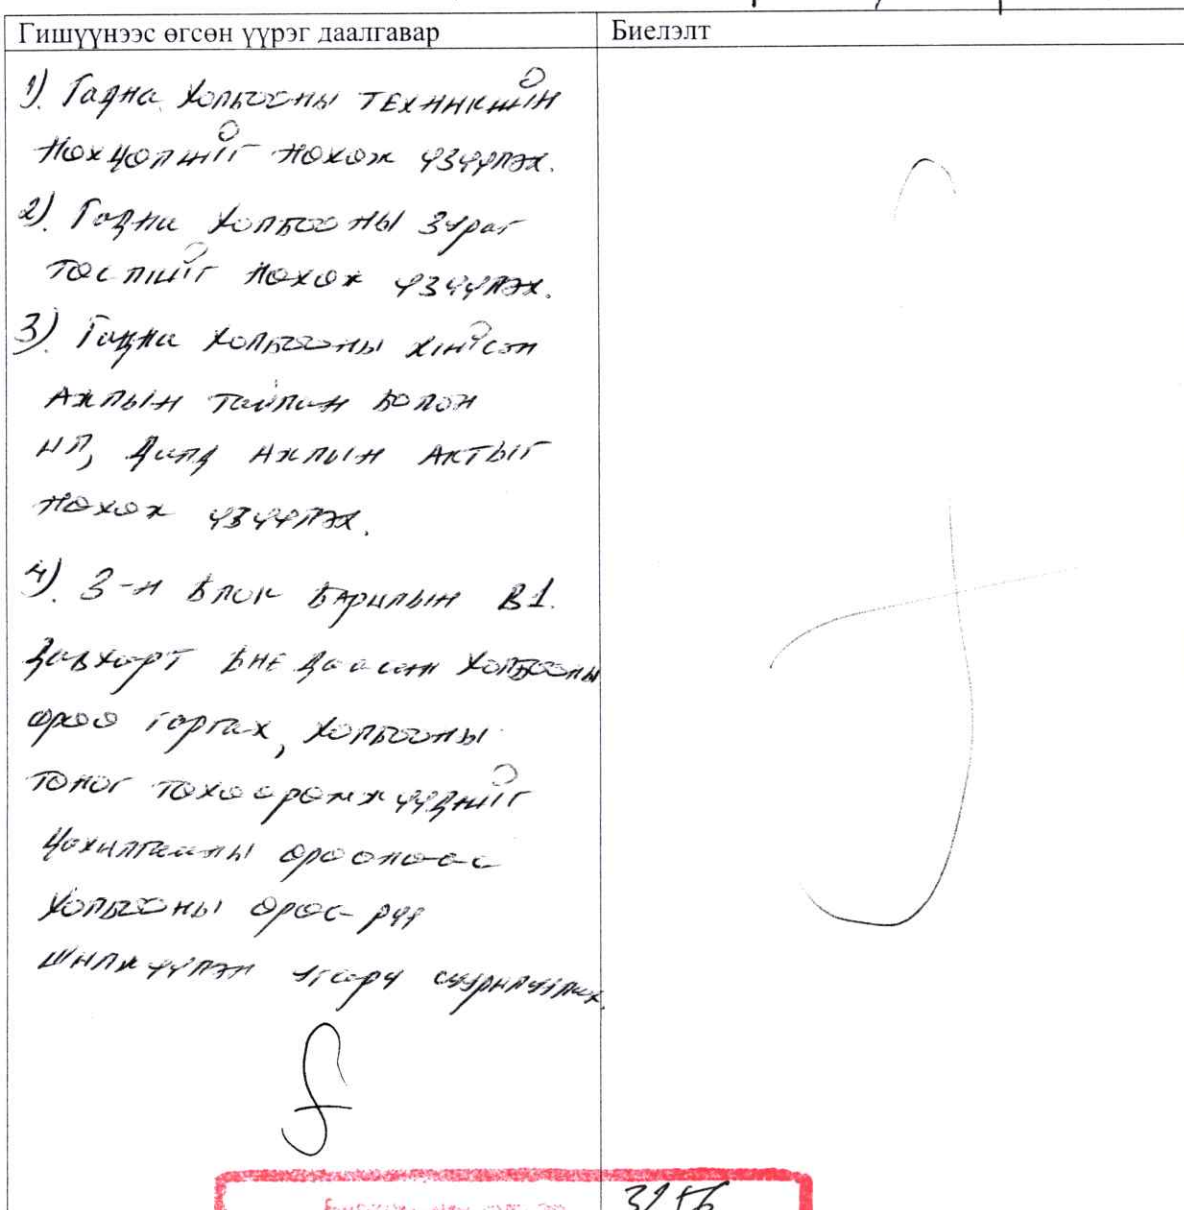 Гишүүнээс өгсөн үүрэг даалгавар
Биелэлт
1). Гадна холбооны техникийн
нөхцөлийг нөхөж үзүүлэх.
2). Гадна холбооны зураг
төслийг нөхөж үзүүлэх.
3). Гадна холбооны хийсэн
ажлын тайлан болон
ИЛ, Далд ажлын актыг
нөхөж үзүүлэх.
4). 3-н блок барилын В1.
давхарт бие даасан холбооны
өрөө гаргах, холбооны
тоног төхөөрөмжүүдийг
цахилгааны өрөөнөөс
холбооны өрөө-рүү
шилжүүлэн угсарч суурилуулах.